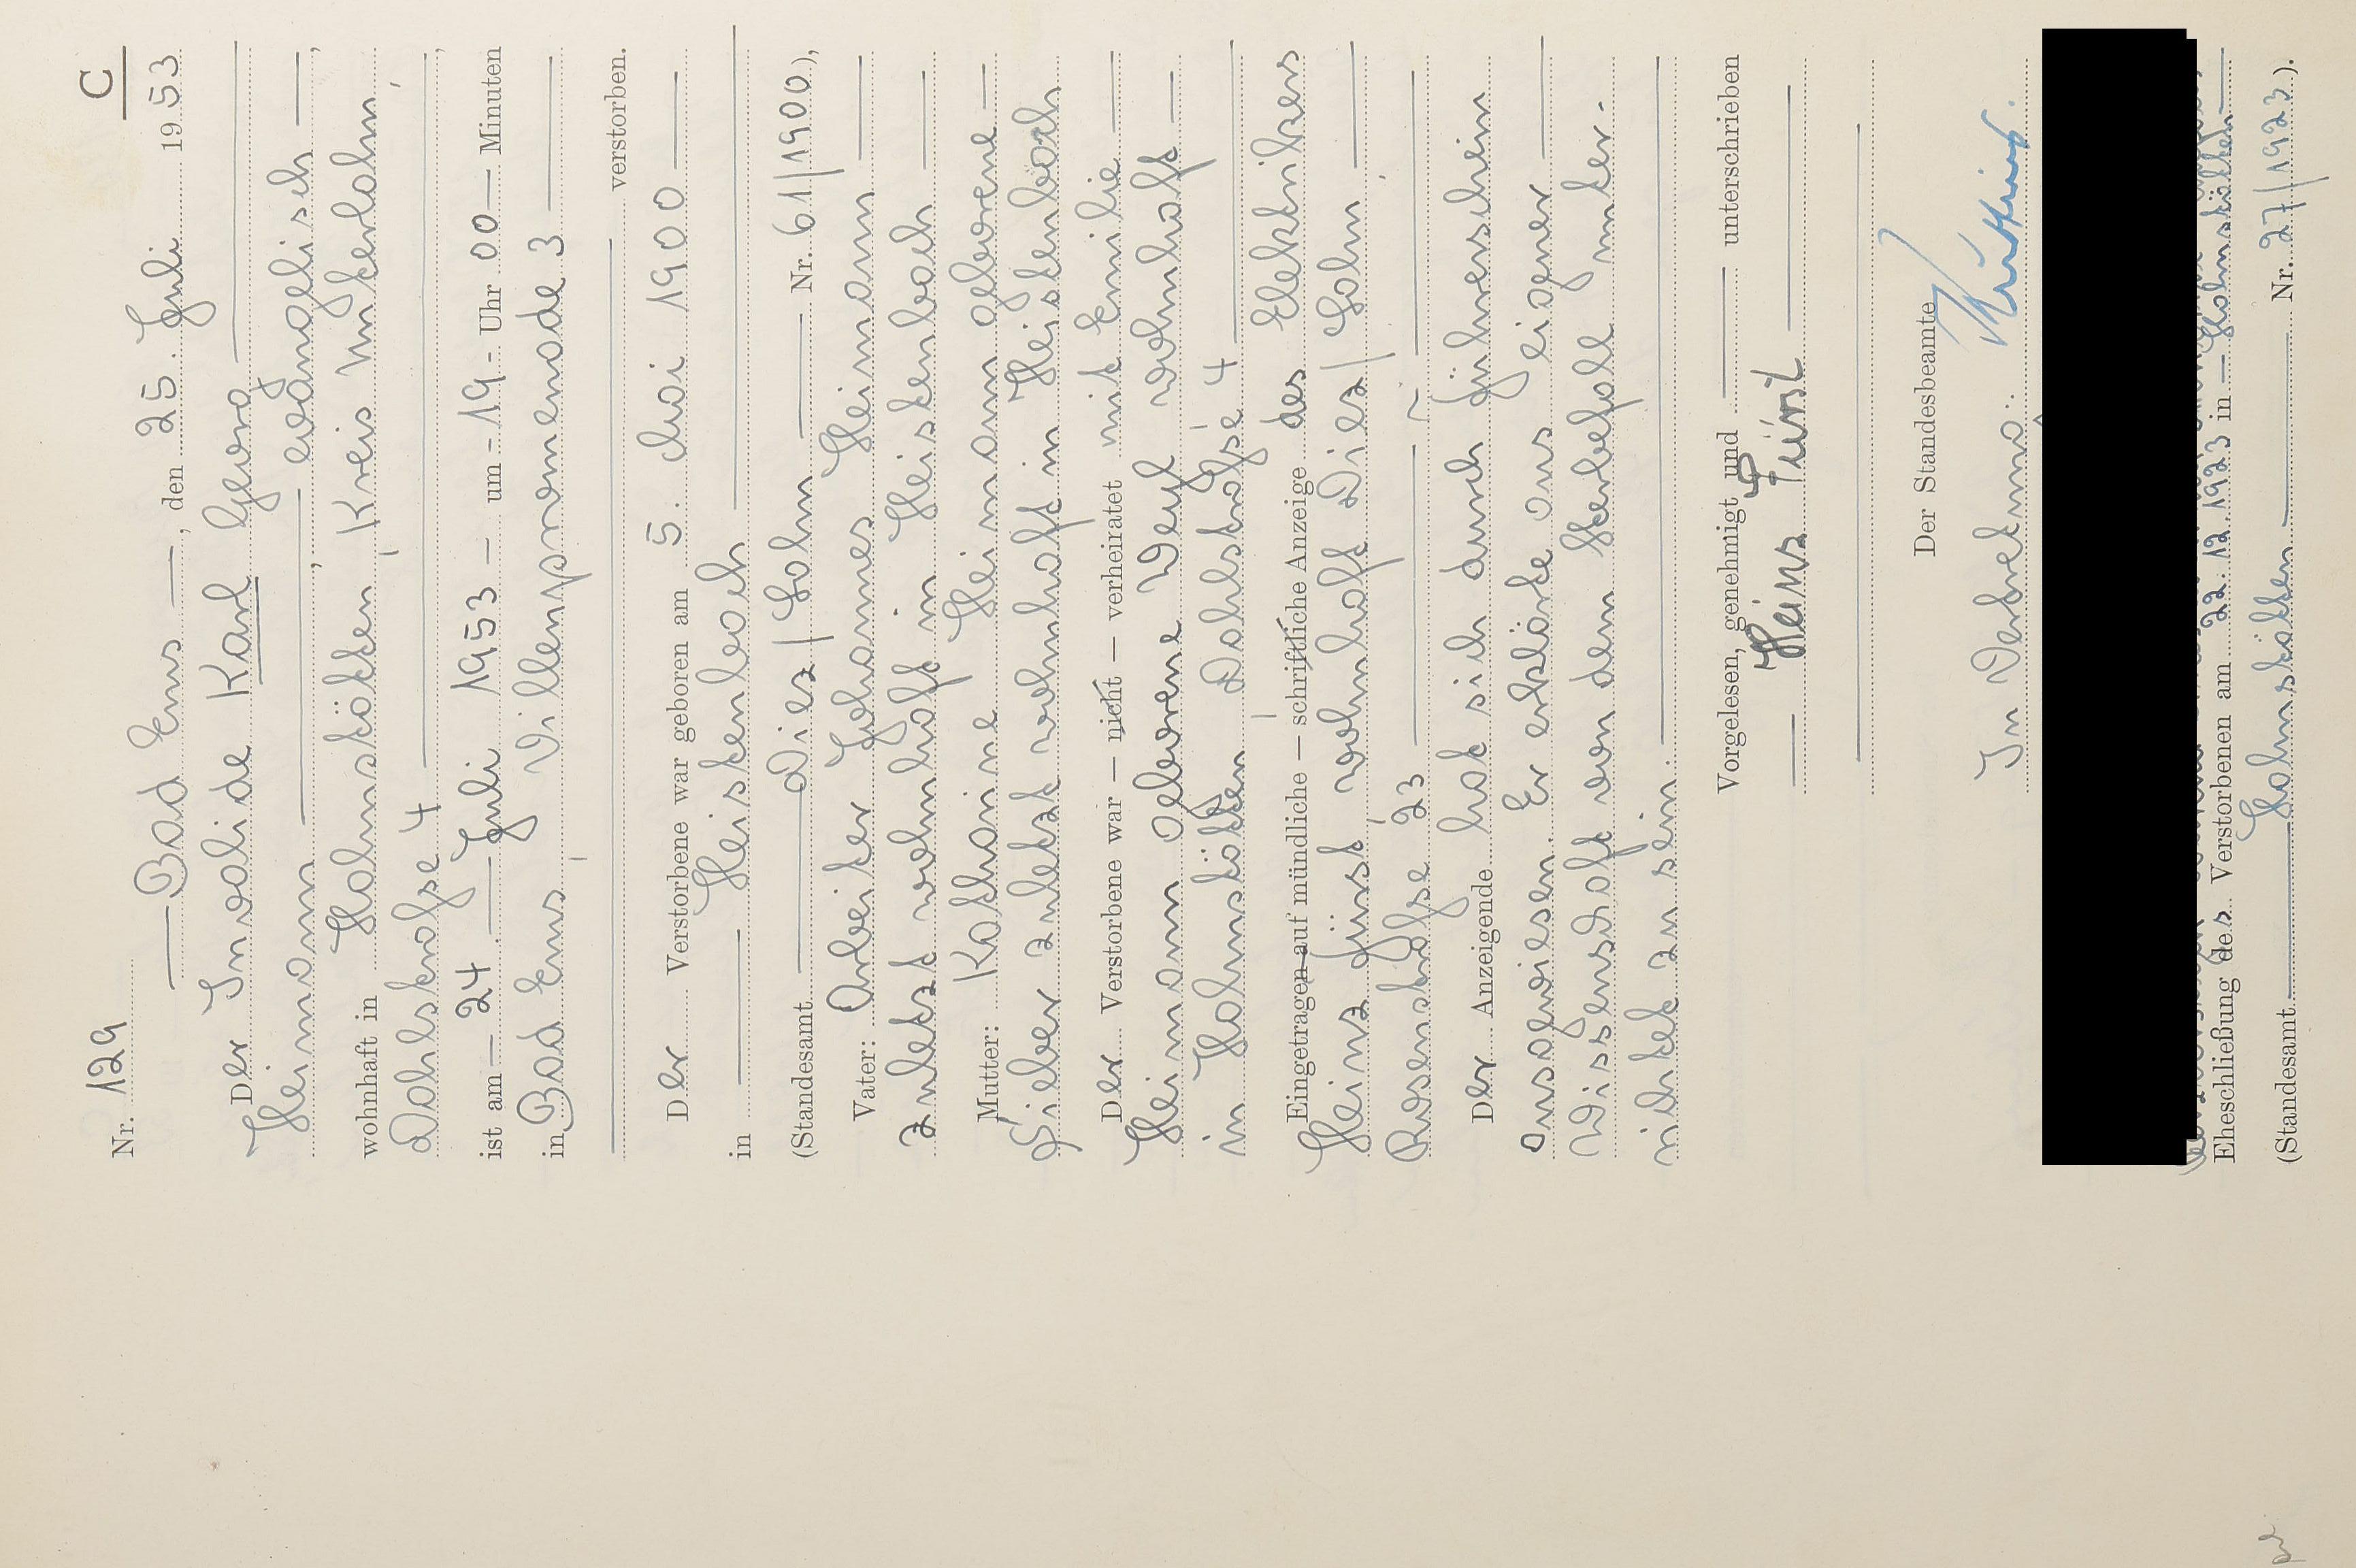 C
Nr. 129
Bad Ems, den 25. Juli 1953
Der Invalide Karl Georg
Heimann, evangelisch,
wohnhaft in Halmstätten, Kreis Unterlahn,
Dahlstraße 4,
ist am 24. Juli 1953 um 19 Uhr 00 Minuten
in Bad Ems, Villenpromenade 3
verstorben.
Der Verstorbene war geboren am 5. Mai 1900
in Heistenbach
(Standesamt Diez/Lahn Nr. 61/1900),
Vater: Arbeiter Johannes Heimann
zuletzt wohnhaft in Heistenbach
Mutter: Katharine Heimann geborene
Sieber zuletzt wohnhaft in Heistenbach
Der Verstorbene war — nicht — verheiratet mit Emilie
Heimann geborene Weyl wohnhaft
in Hahnstätten, Dahlstraße 4
Eingetragen auf mündliche — schriftliche Anzeige des Elektrikers
Heinz Fürst wohnhaft Diez/Lahn,
Rosenstraße 23
Der Anzeigende hat sich durch Führerschein
ausgewiesen. Er erklärte aus eigener
Wissenschaft von dem Sterbefall unter-
richtet zu sein.
Vorgelesen, genehmigt und unterschrieben
Heinz Fürst
Der Standesbeamte
In Vertretung:
Eheschließung des Verstorbenen am 22.12.1923 in Hahnstätten
(Standesamt Hahnstätten Nr. 27/1923).